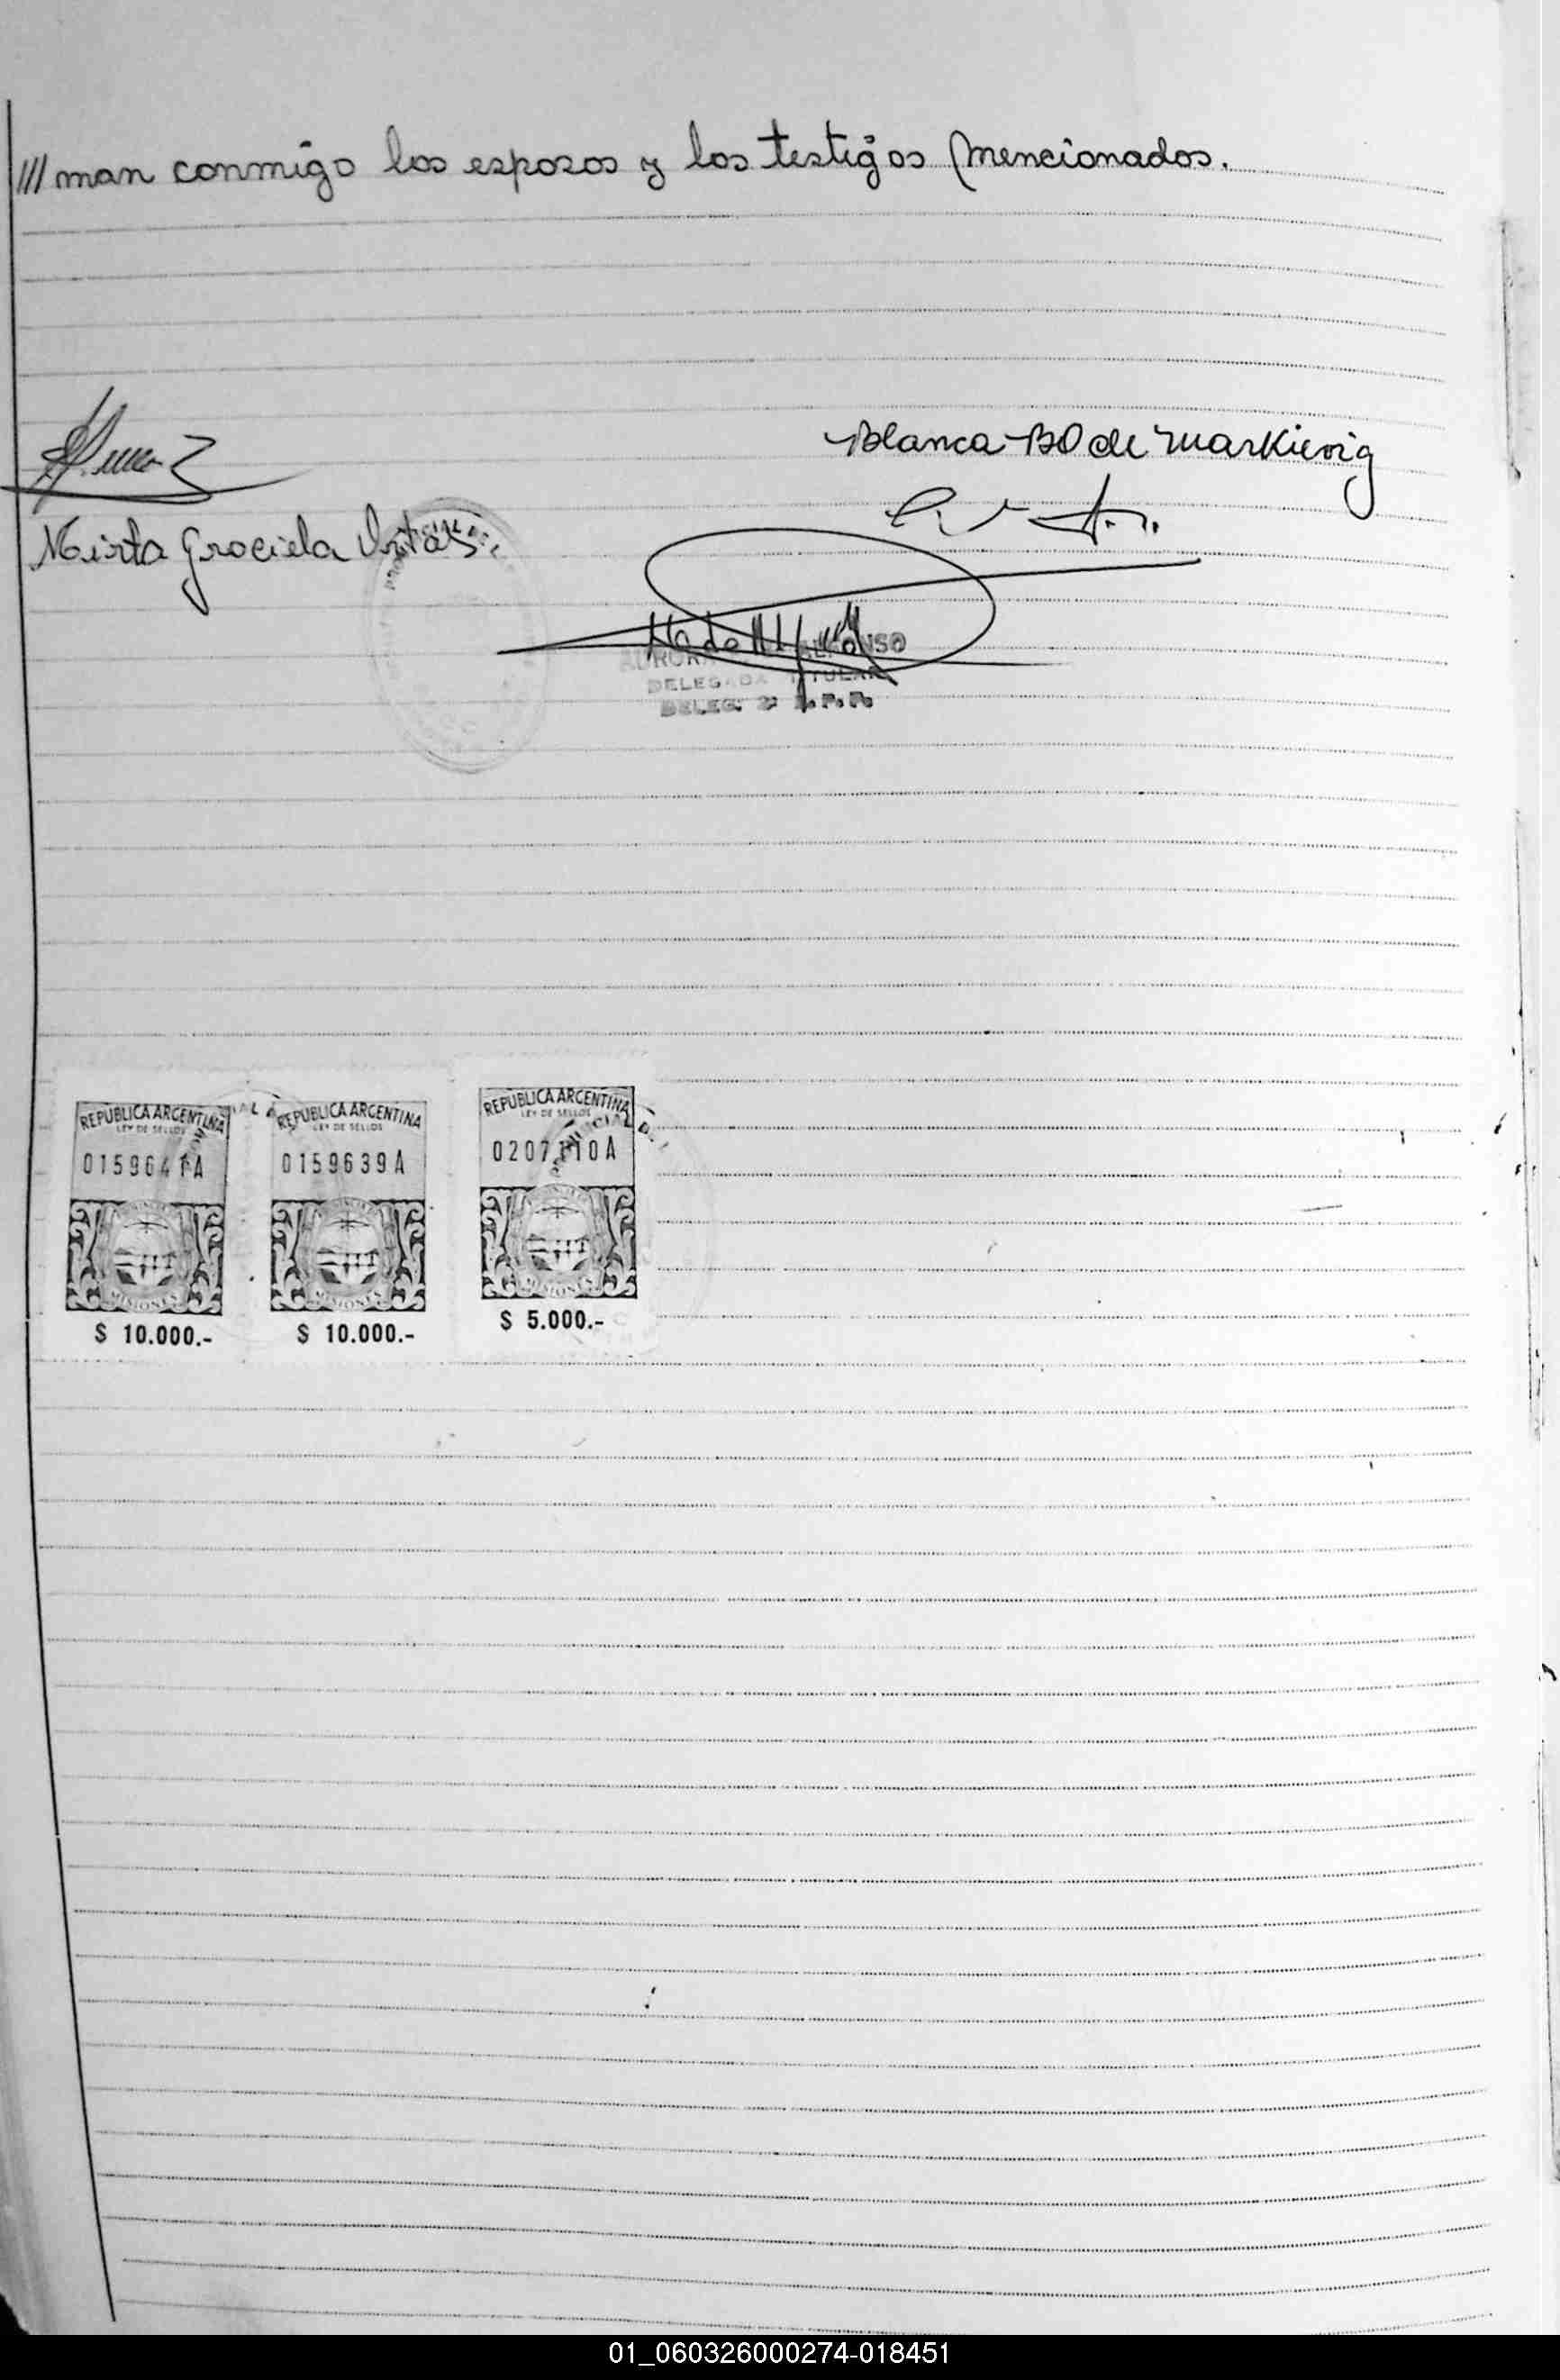 ///man conmigo los esposos y los testigos mencionados.
Blanca BO de Markievig
Mirta Graciela
DELEGADA TITULAR
DELEG. 2ª R.P.P.
REPUBLICA ARGENTINA
LEY DE SELLOS
0159641A
MISIONES
$ 10.000.-
REPUBLICA ARGENTINA
LEY DE SELLOS
0159639A
MISIONES
$ 10.000.-
REPUBLICA ARGENTINA
LEY DE SELLOS
0207110A
MISIONES
$ 5.000.-
01_060326000274-018451